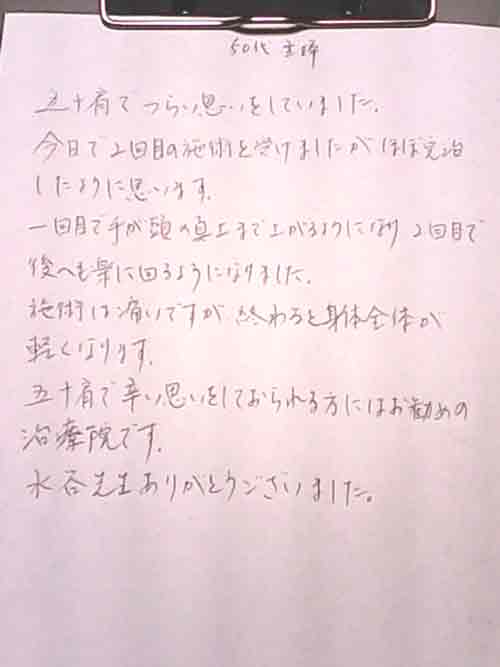 50代 主婦
五十肩でつらい思いをしていました。
今日で2回目の施術を受けましたがほぼ完治
したように思います。
一回目で手が頭の真上まで上がるようになり 2回目で
後へも楽に回るようになりました。
施術は痛いですが 終わると身体全体が
軽くなります。
五十肩で辛い思いをしておられる方にはお勧めの
治療院です。
水谷先生ありがとうございました。